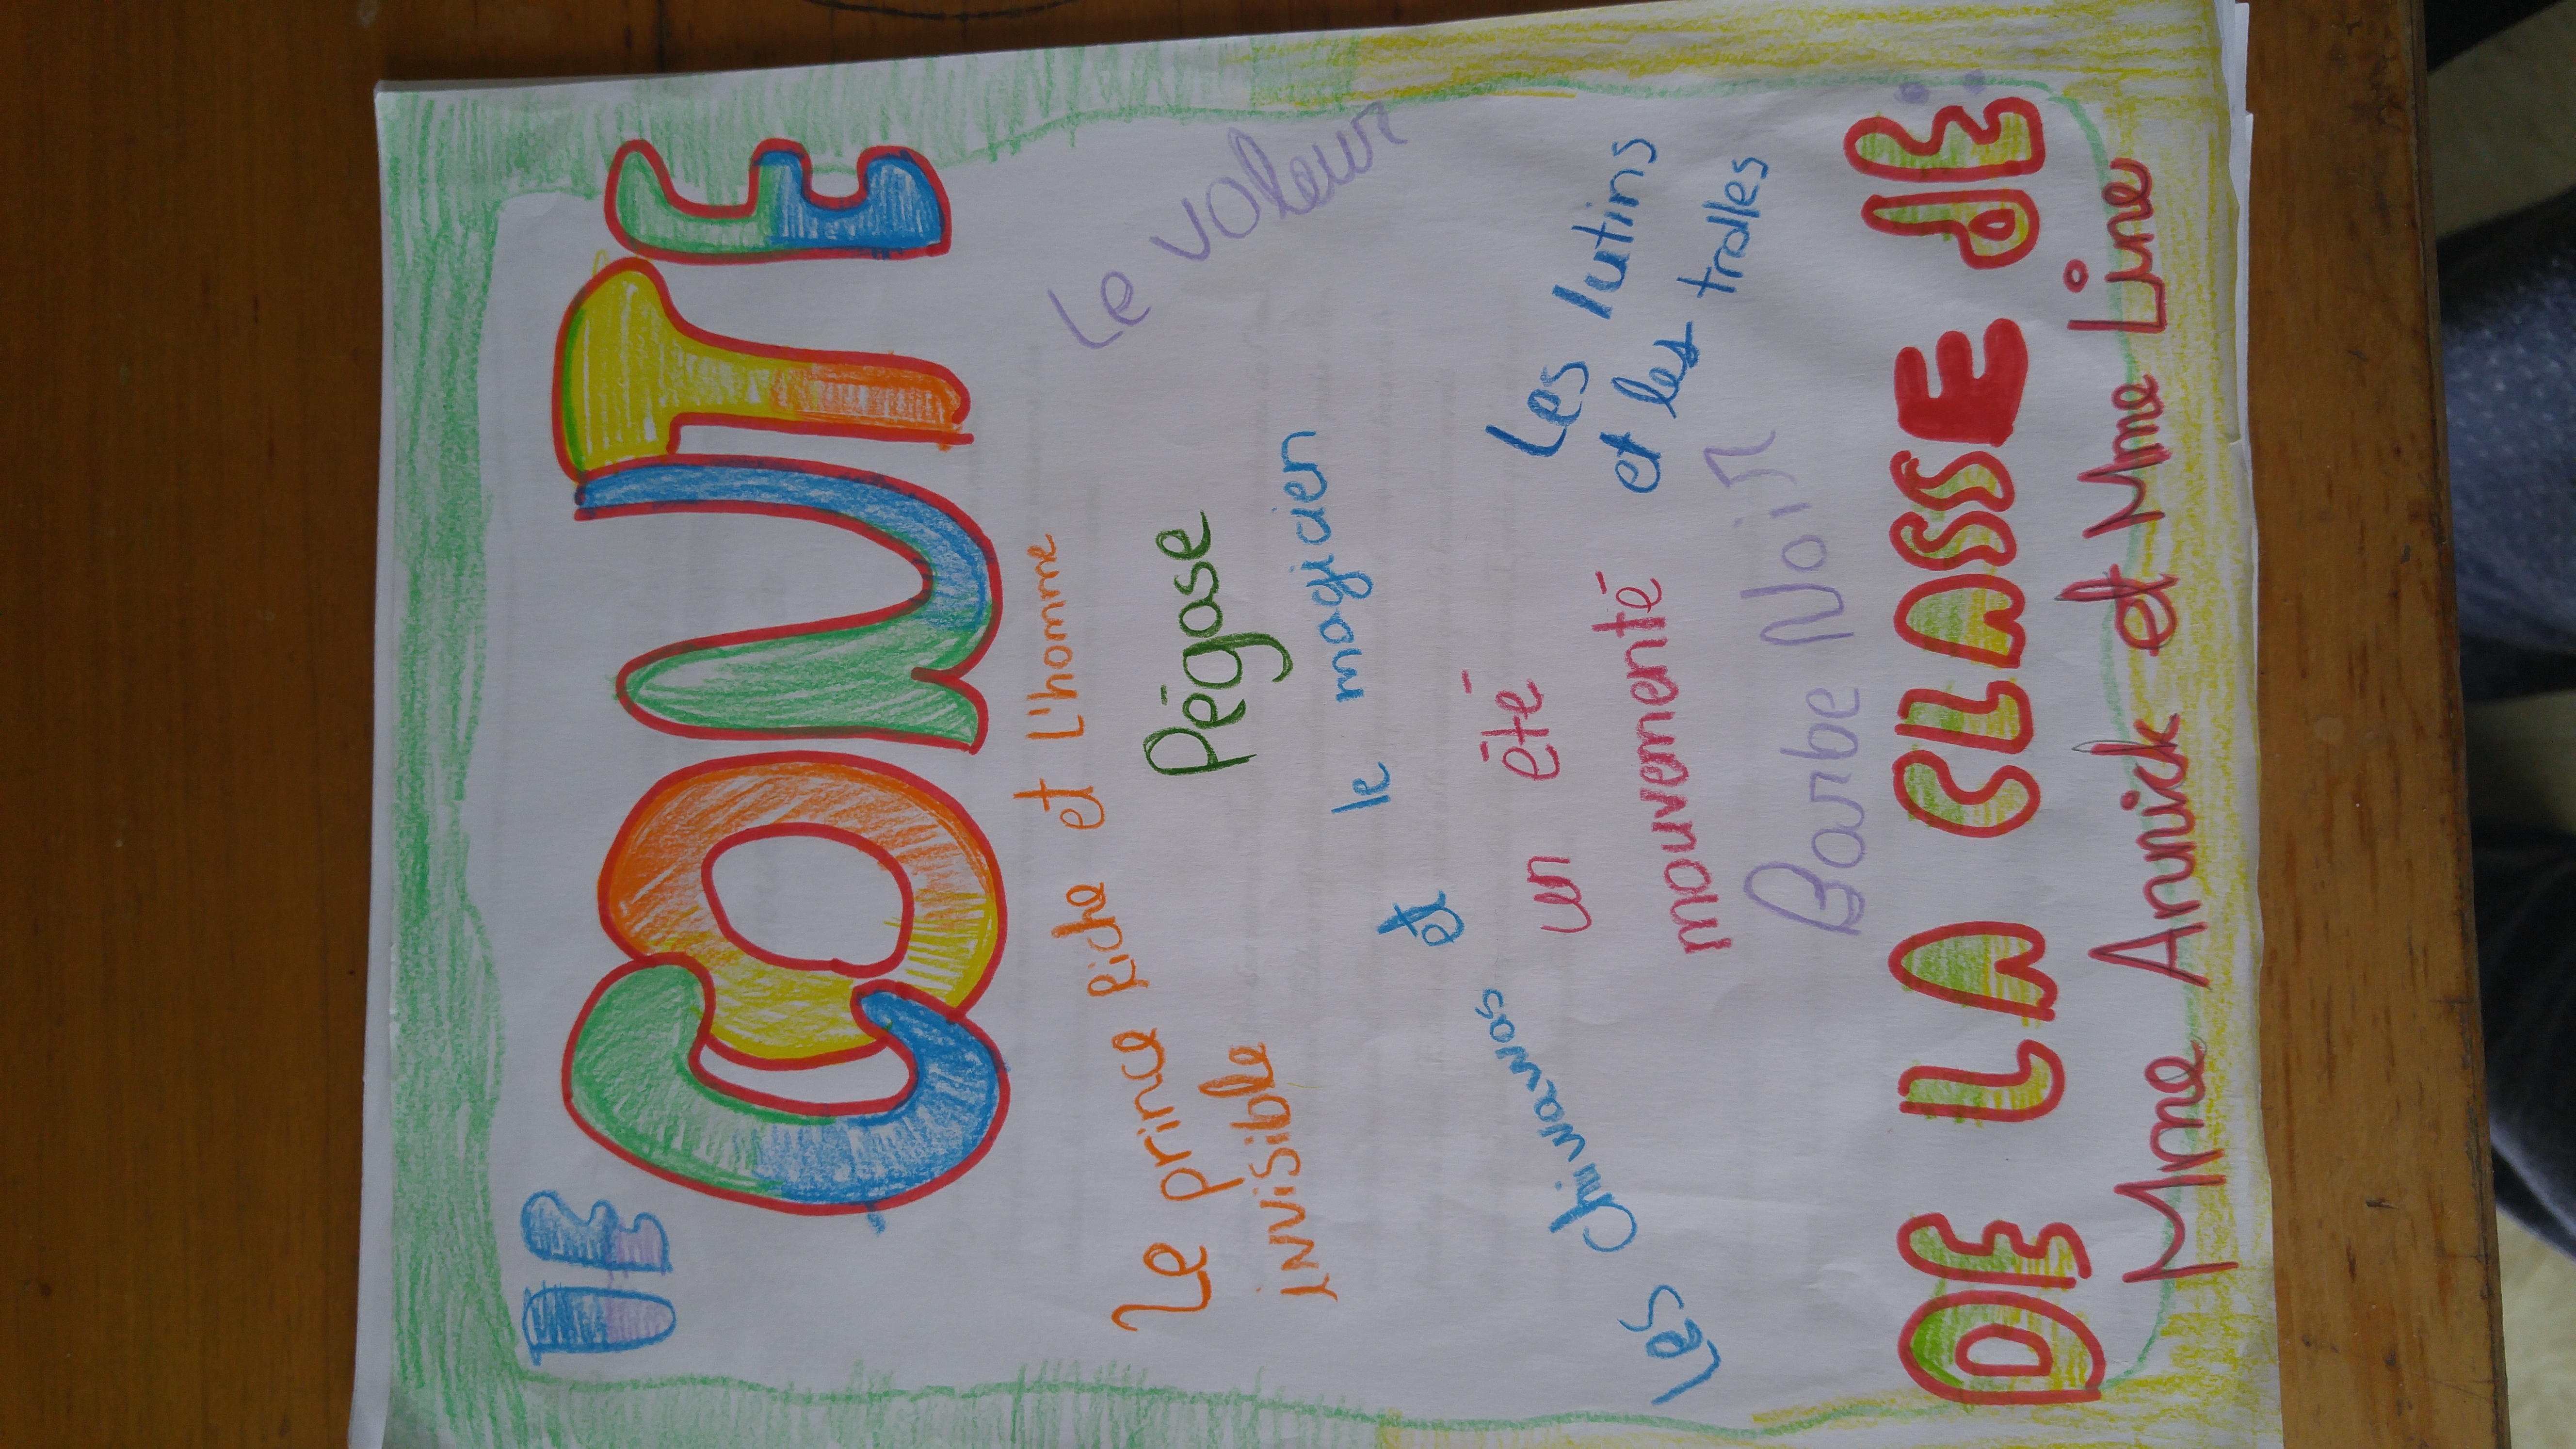 LE
CONTE
Le prince Riche et L'homme
invisible
Le voleur
Pégase
Les chiwawas et le magicien
Les lutins
et les trolles
un été
mouvementé
Barbe Noir
DE LA CLASSE DE :
Mme Annick et Mme Line